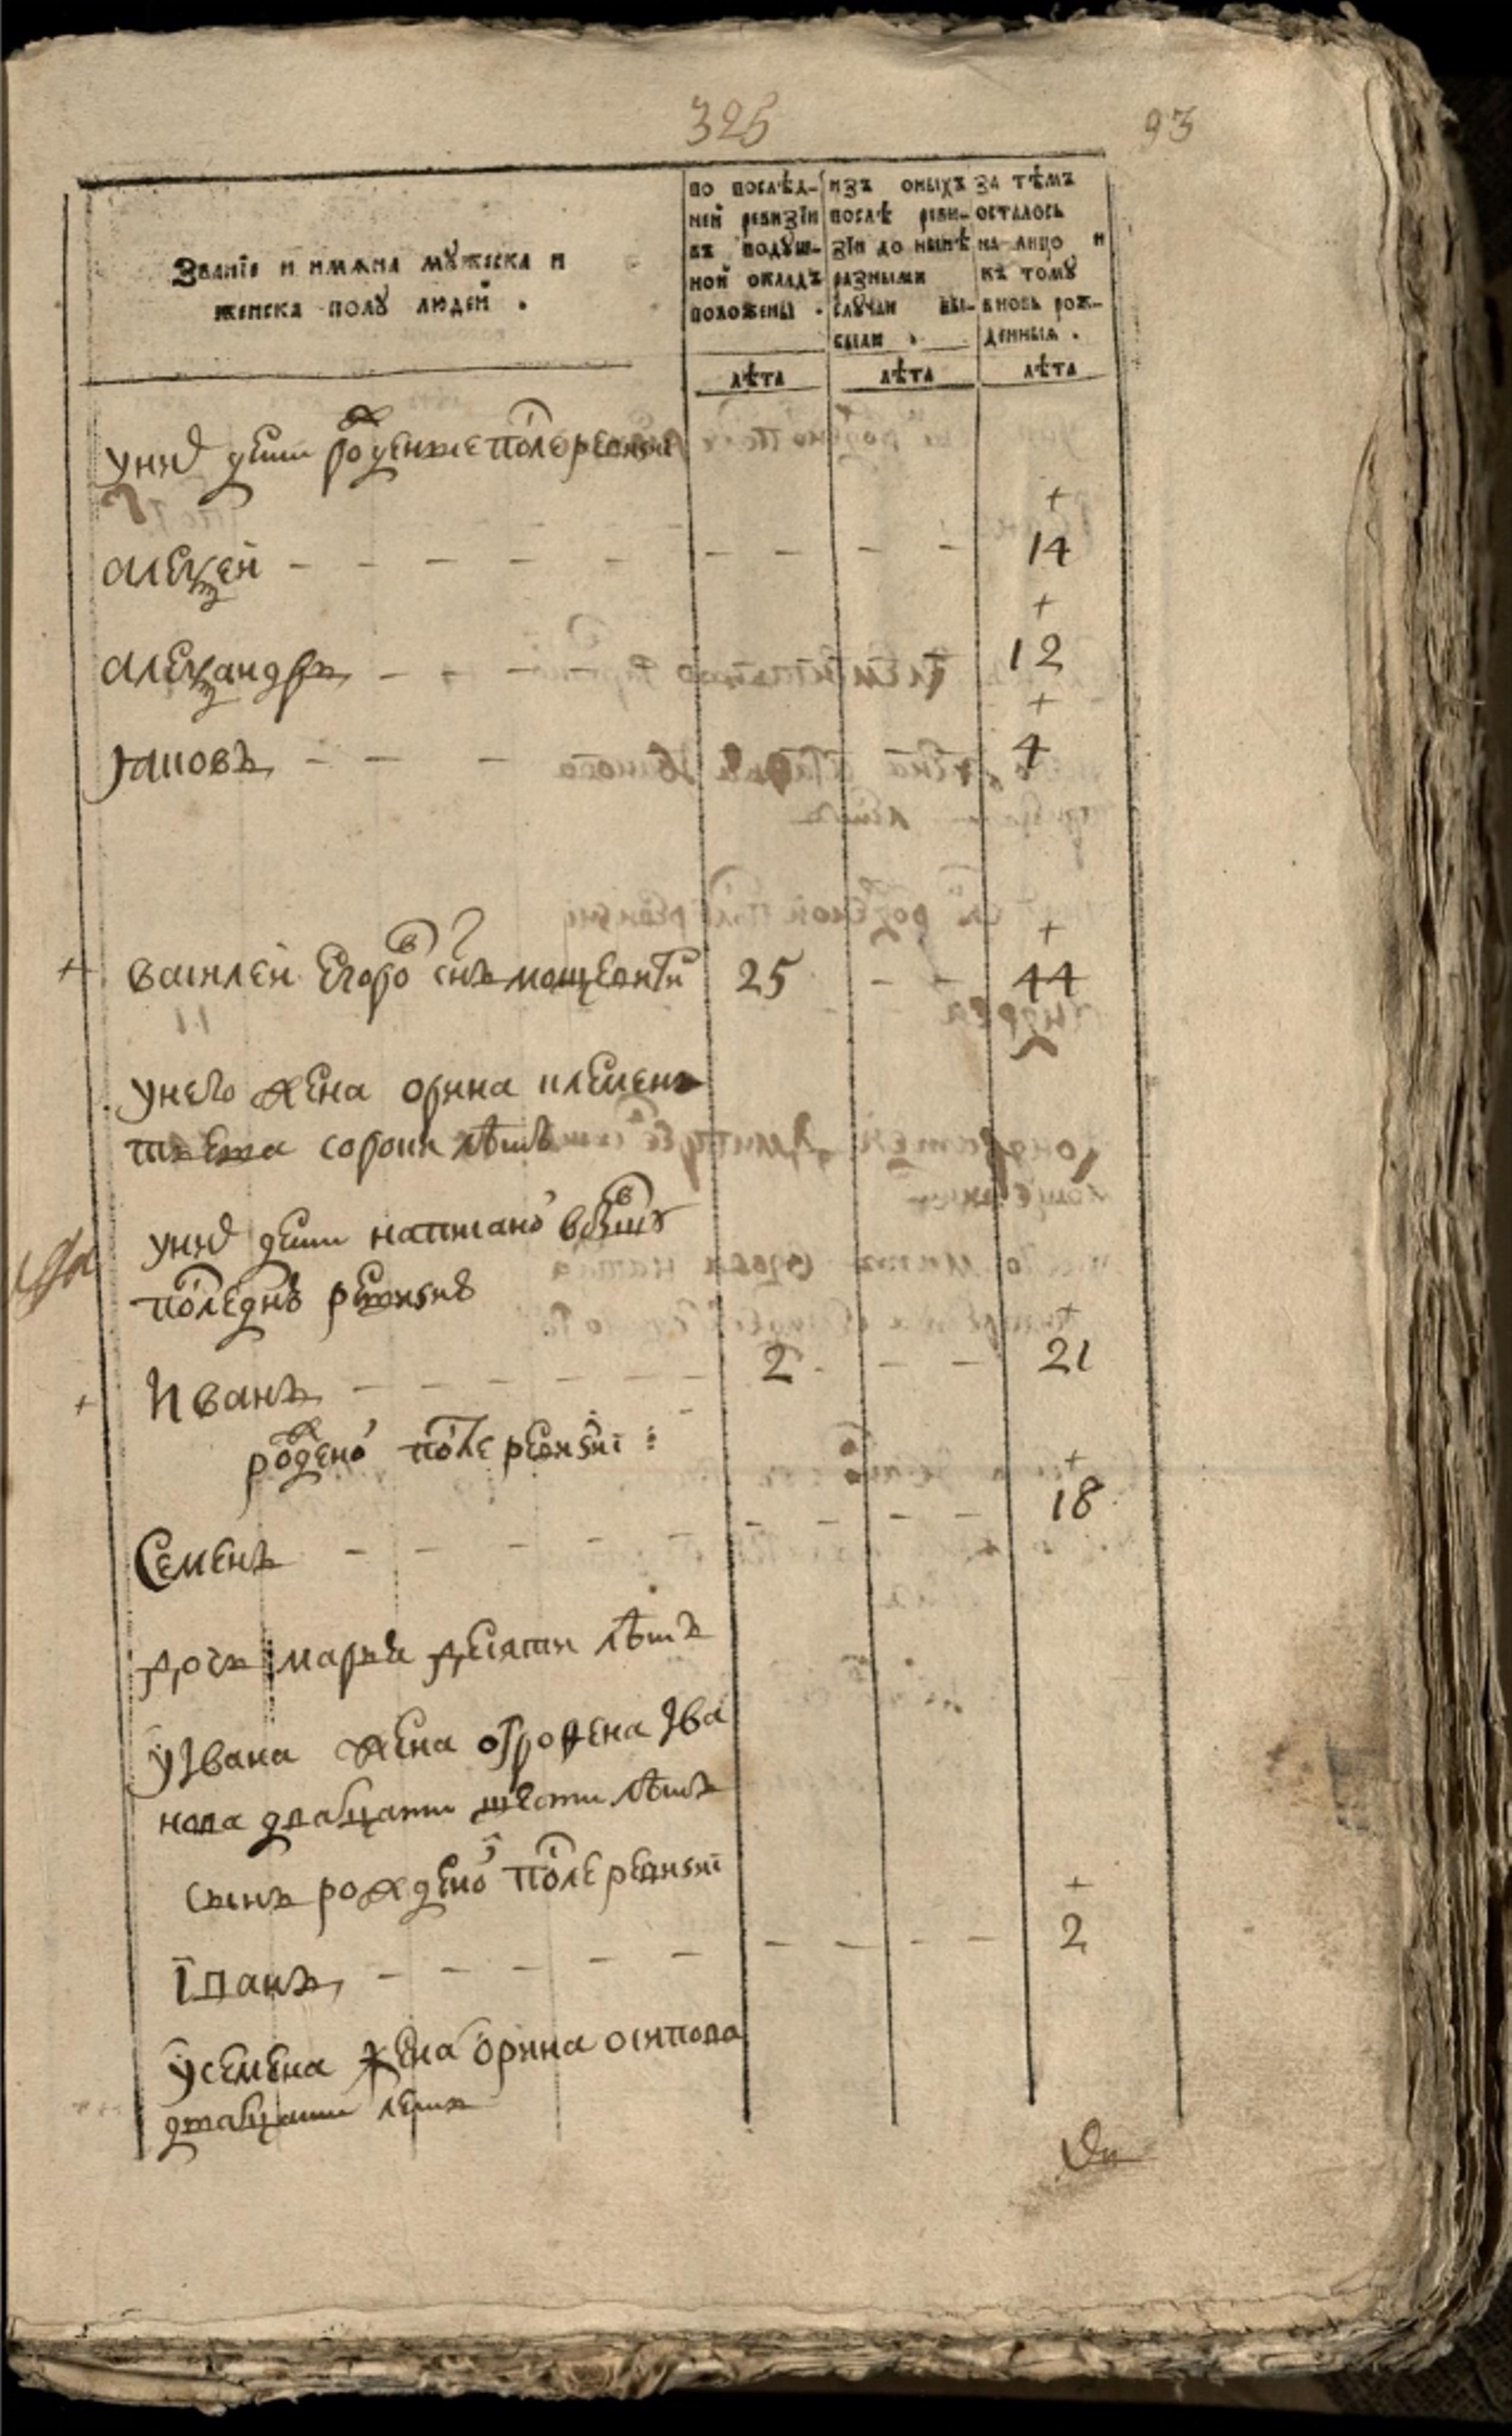 325
93
Званїе и имѧна мꙋжеска и
женска полꙋ людей .
по послѣд-
ней ревизїи
въ подꙋш-
ной окладъ
положены .
изъ оныхъ
послѣ реви-
зїи до нынѣ
разными
слꙋчаи вы-
были .
за тѣмъ
осталось
на лицо и
къ томꙋ
вновь рож-
денныѧ .
лѣта лѣта лѣта
у них дети рожденые после ревизи
+
алексей - - - - - - - - - 14
+
александръ - - - 12
+
яковъ - - - 4
+
+ василей егоров снъ мощевитин 25 - - 44
у него жена орина клемен
тьева сорокъ летъ
у них дети написаног в бывшу
последню ревизию
+
+ Иванъ - - - - - - 2 - - - 21
рожденог после ревизиї :
+
Семенъ - - - - - - - - - 18
дочь марья десяти летъ
у Iвана жена офросена Iва
нова дватцати шести летъ
сынъ рожденог после ревизиї
+
Iванъ - - - - - - - - - 2
у семена жена орина осипова
дватцати летъ